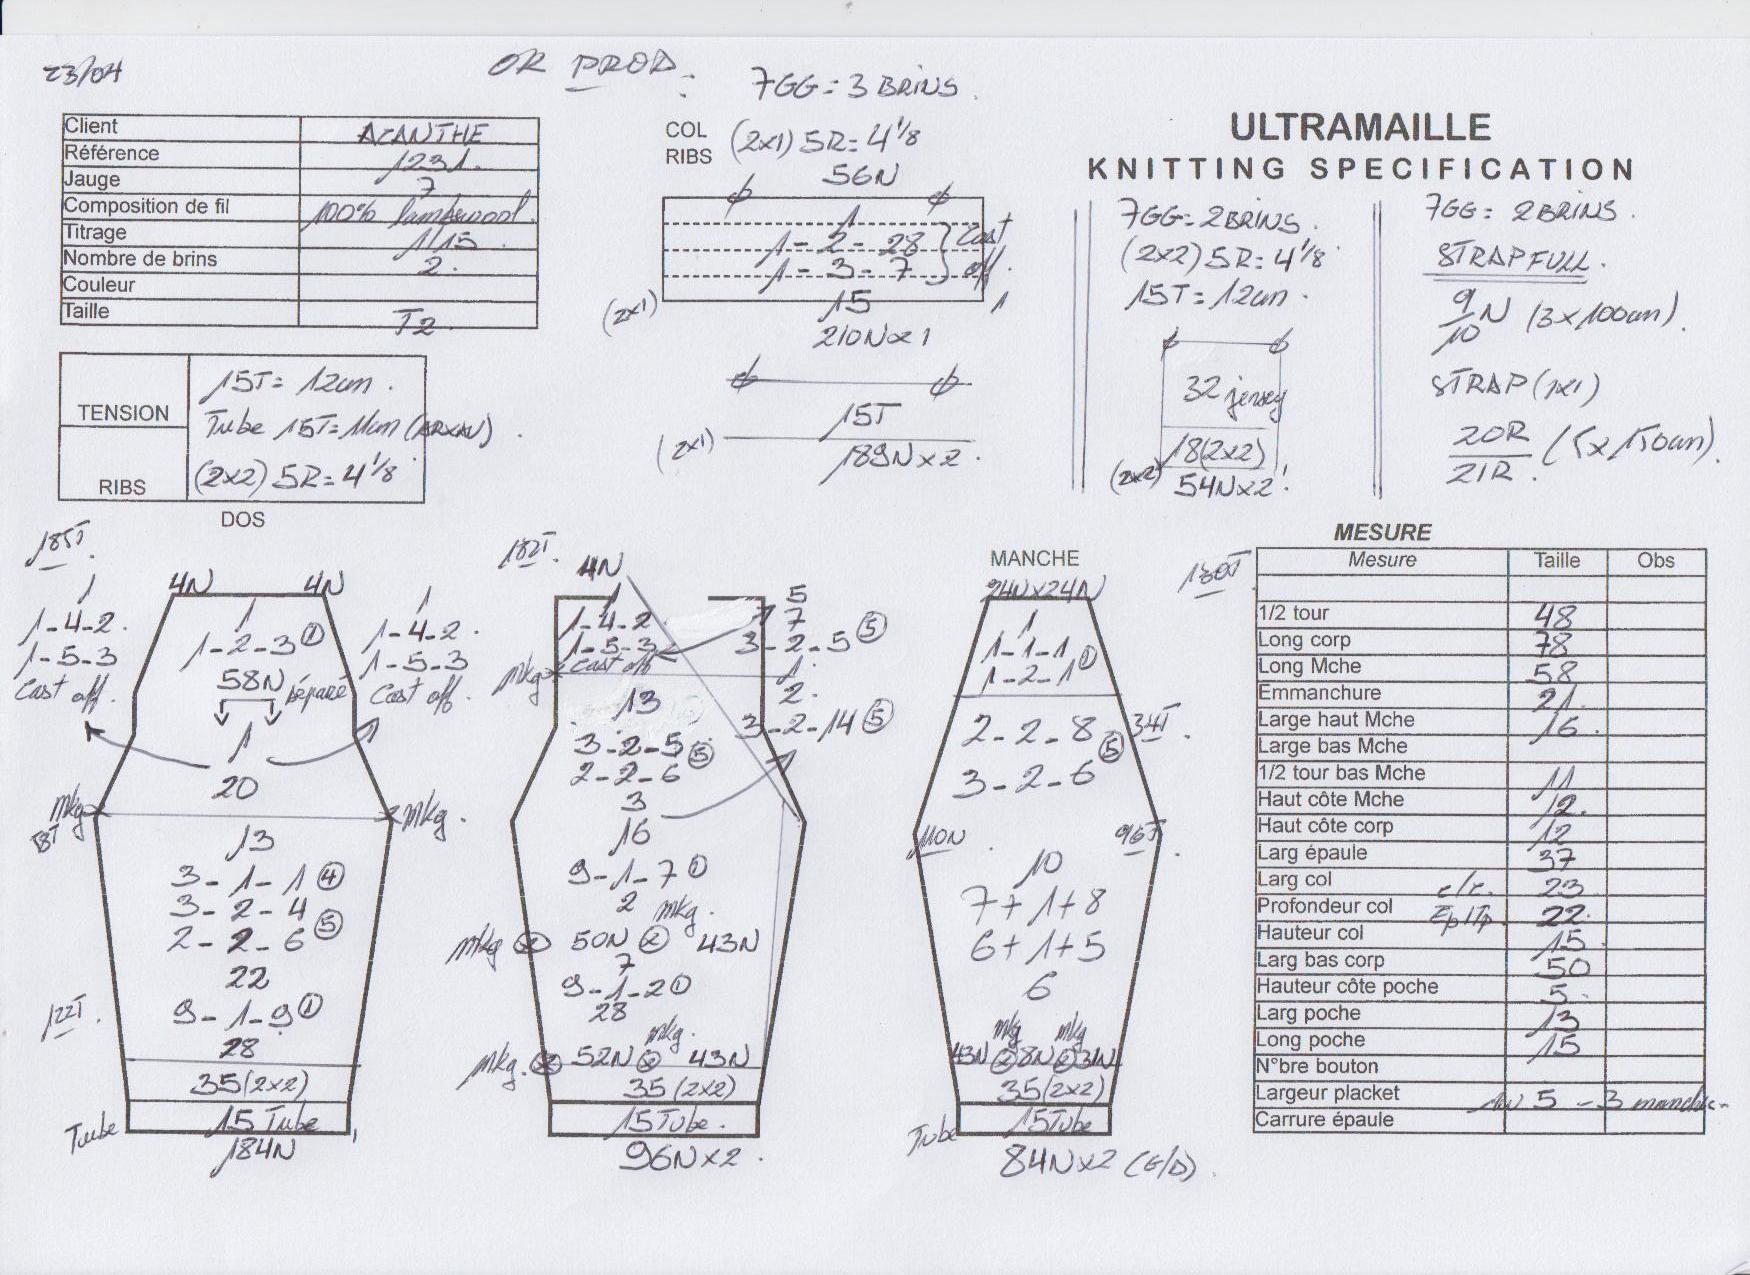 23/04
OR PROD.
7GG = 3 BRINS.
Client ACANTHE
Référence 1231.
Jauge 7
Composition de fil 100% lambswool.
Titrage 1/15.
Nombre de brins 2.
Couleur
Taille T2
COL
RIBS (2x1) 5R = 4 1/8
56N
1
1-2-28
1-3-7
Cast off.
15
(2x1)
1
210N x 1
15T
(2x1)
189N x 2.
ULTRAMAILLE
KNITTING SPECIFICATION
7GG = 2 BRINS.
(2x2) 5R = 4 1/8
15T = 12cm.
32 jersey
18(2x2)
(2x2)
54N x 2
7GG = 2 BRINS.
STRAP FULL.
9/10 N (3 x 100cm).
STRAP (1x1)
20R/21R. (5 x 150cm).
TENSION
15T = 12cm.
Tube 15T = 11cm
RIBS
(2x2) 5R = 4 1/8
DOS
185T.
4N 4N
1
1-4-2.
1-5-3
Cast off.
1
1-2-3 (1)
58N séparé
1
1-4-2.
1-5-3
Cast off.
1
20
mkg mkg.
13
3-1-1 (4)
3-2-4
2-2-6 (5)
22
9-1-9 (1)
122T.
28
35(2x2)
Tube 15 Tube
184N
182T.
4N
1
1-4-2
1-5-3
Cast off
mkg
5
7
3-2-5 (5)
1
2.
3-2-14 (5)
13
3-2-5 (5)
2-2-6
3
16
9-1-7 (1)
2
mkg.
mkg 50N 43N
7
9-1-2 (1)
28
mkg.
mkg. 52N 43N
35(2x2)
15 Tube.
96N x 2.
MANCHE
130T
24N x 24N
1
1-1-1
1-2-1 (1)
2-2-8 (5)
34T.
3-2-6
110N 96T.
10
7+1+8
6+1+5
6
mkg mkg
43N 8N 31N
35(2x2)
Tube 15 Tube
84N x 2 (G/D).
MESURE
Mesure Taille Obs
1/2 tour 48
Long corp 78
Long Mche 58
Emmanchure 21.
Large haut Mche 16.
Large bas Mche
1/2 tour bas Mche 11
Haut côte Mche 12.
Haut côte corp 12
Larg épaule 37
Larg col c/c. 23
Profondeur col Ep/Tp. 22.
Hauteur col 15.
Larg bas corp 50
Hauteur côte poche 5.
Larg poche 13
Long poche 15
N°bre bouton
Largeur placket 5 - 3
Carrure épaule